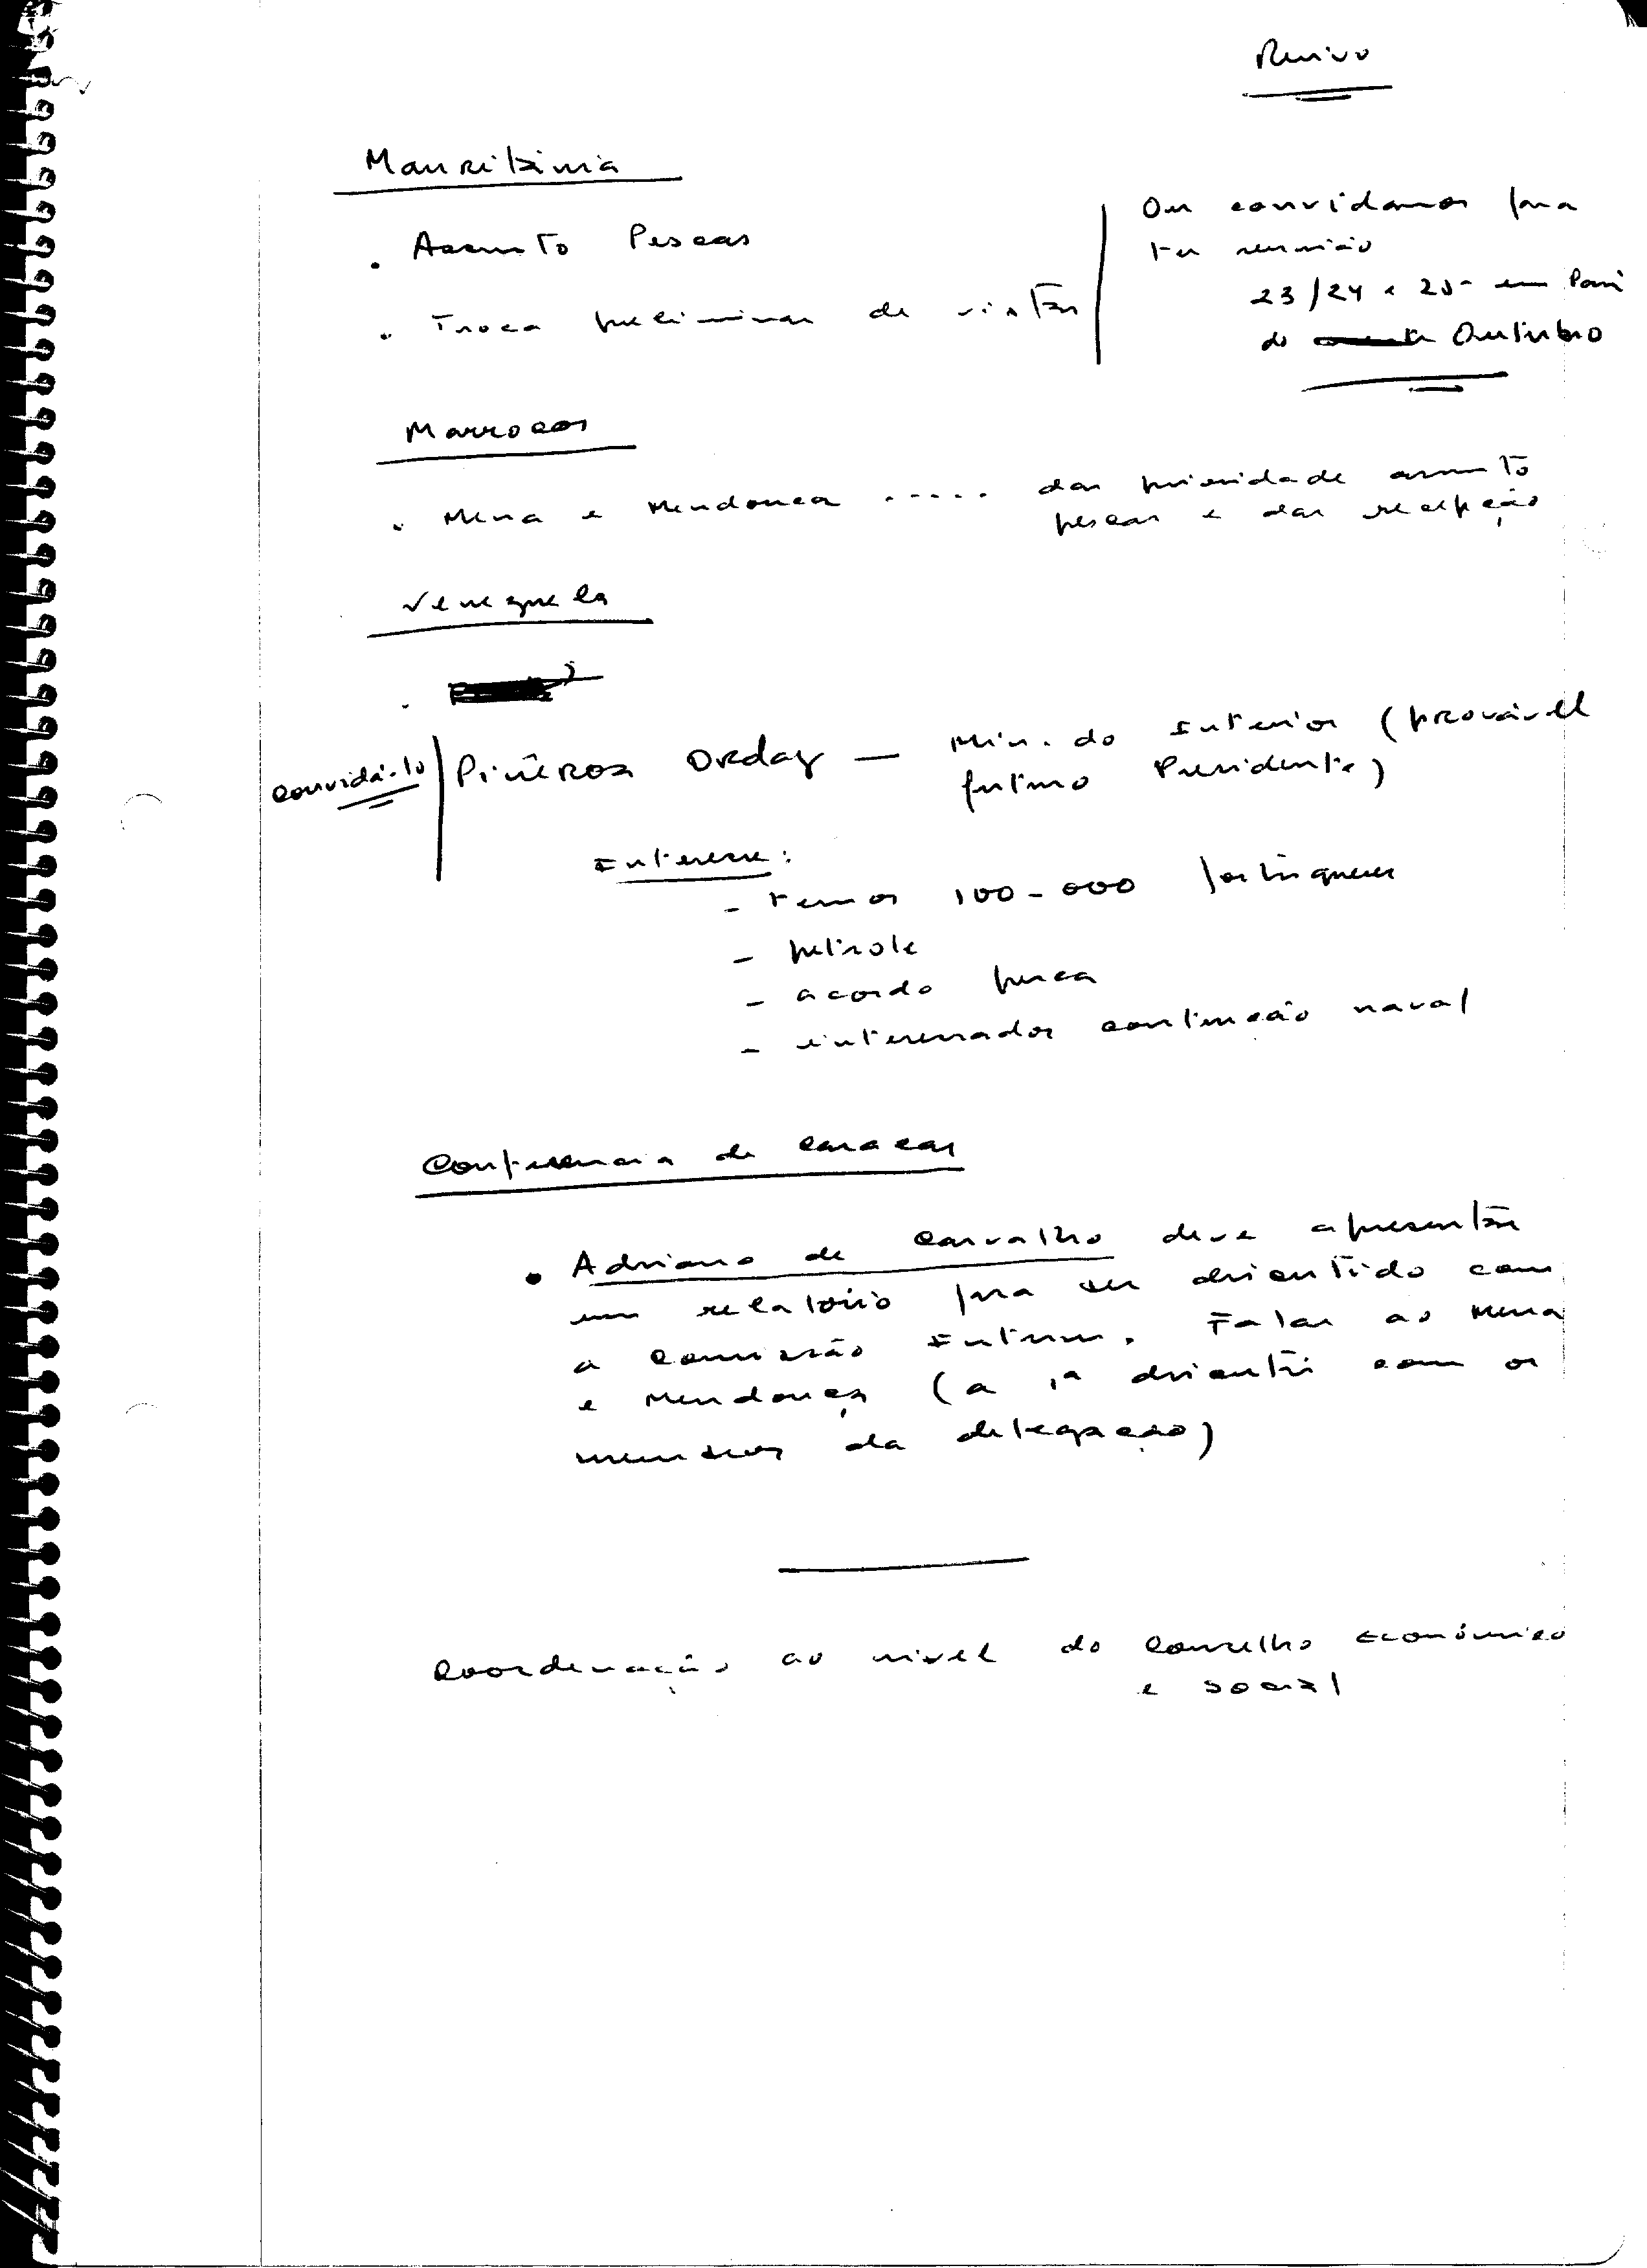 Mauritânia
. Assunto Pescas
. Troca preliminar de vistas
Ou convidamos para
ter reunião
23/24 e 25 em Paris
de Outubro
Marrocos
. Mena e Mendonça ..... dar prioridade assunto
pescas e dar recepção
Venezuela
convidá-lo
Piñeroa Ordaz — Min. do Interior (provável
futuro Presidente)
Interesse:
- temos 100-000 portugueses
- petróleo
- acordo pesca
- interessados construção naval
Conferencia de Caracas
. Adriano de Carvalho deve apresentar
um relatório para ser discutido com
a Comissão Interm. Falar ao Mena
e Mendonça (a 1ª discuti com os
membros da delegação)
Coordenação ao nivel do Conselho Económico
e social